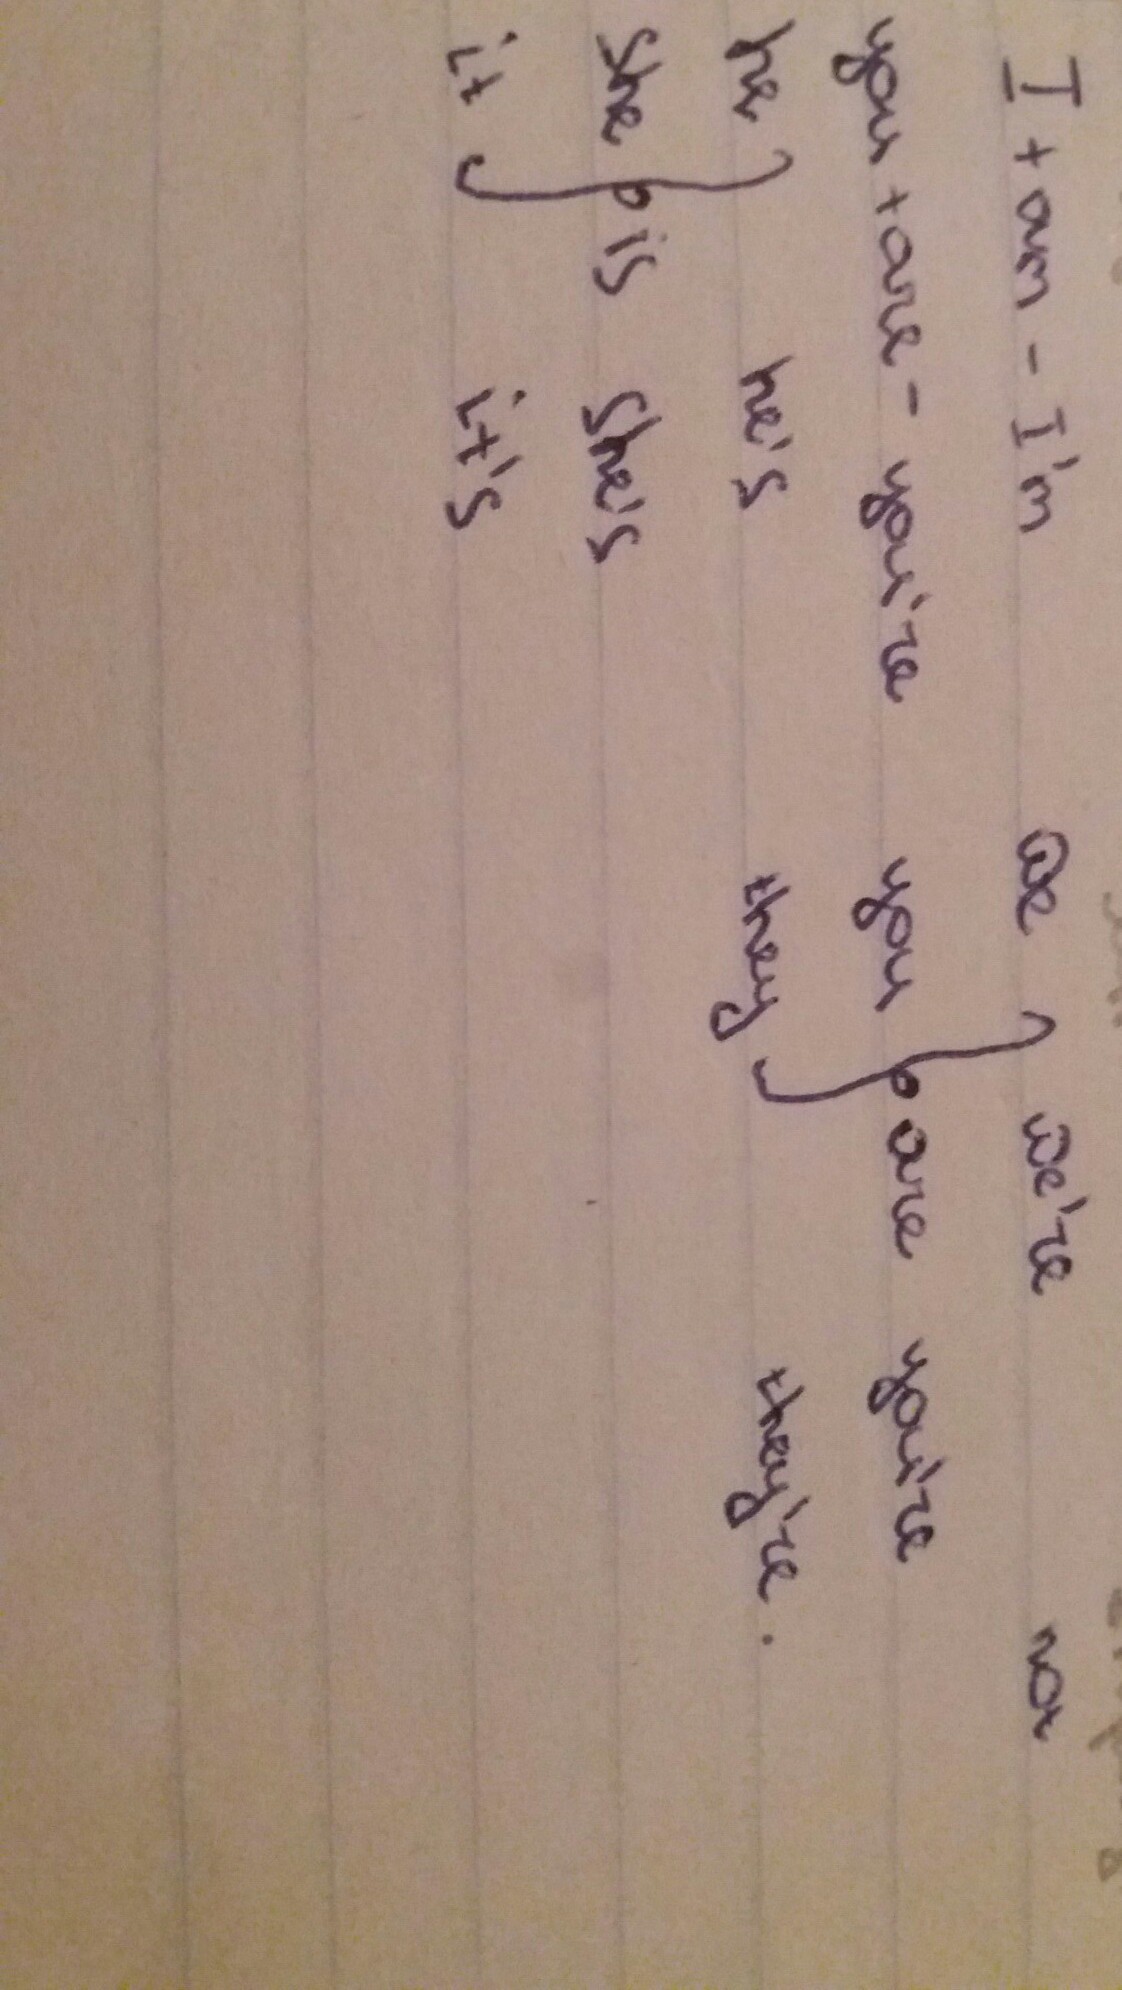 I + am - I'm we we're not
you + are - you're you } are you're
he he's they they're.
she } is she's
it it's